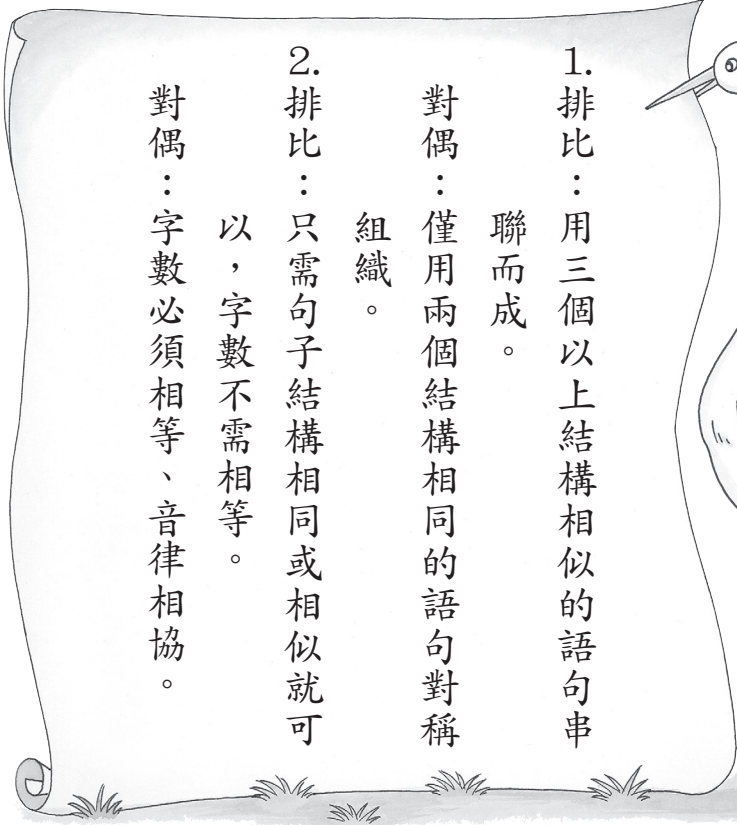 1.排比：用三個以上結構相似的語句串
聯而成。
對偶：僅用兩個結構相同的語句對稱
組織。
2.排比：只需句子結構相同或相似就可
以，字數不需相等。
對偶：字數必須相等、音律相協。